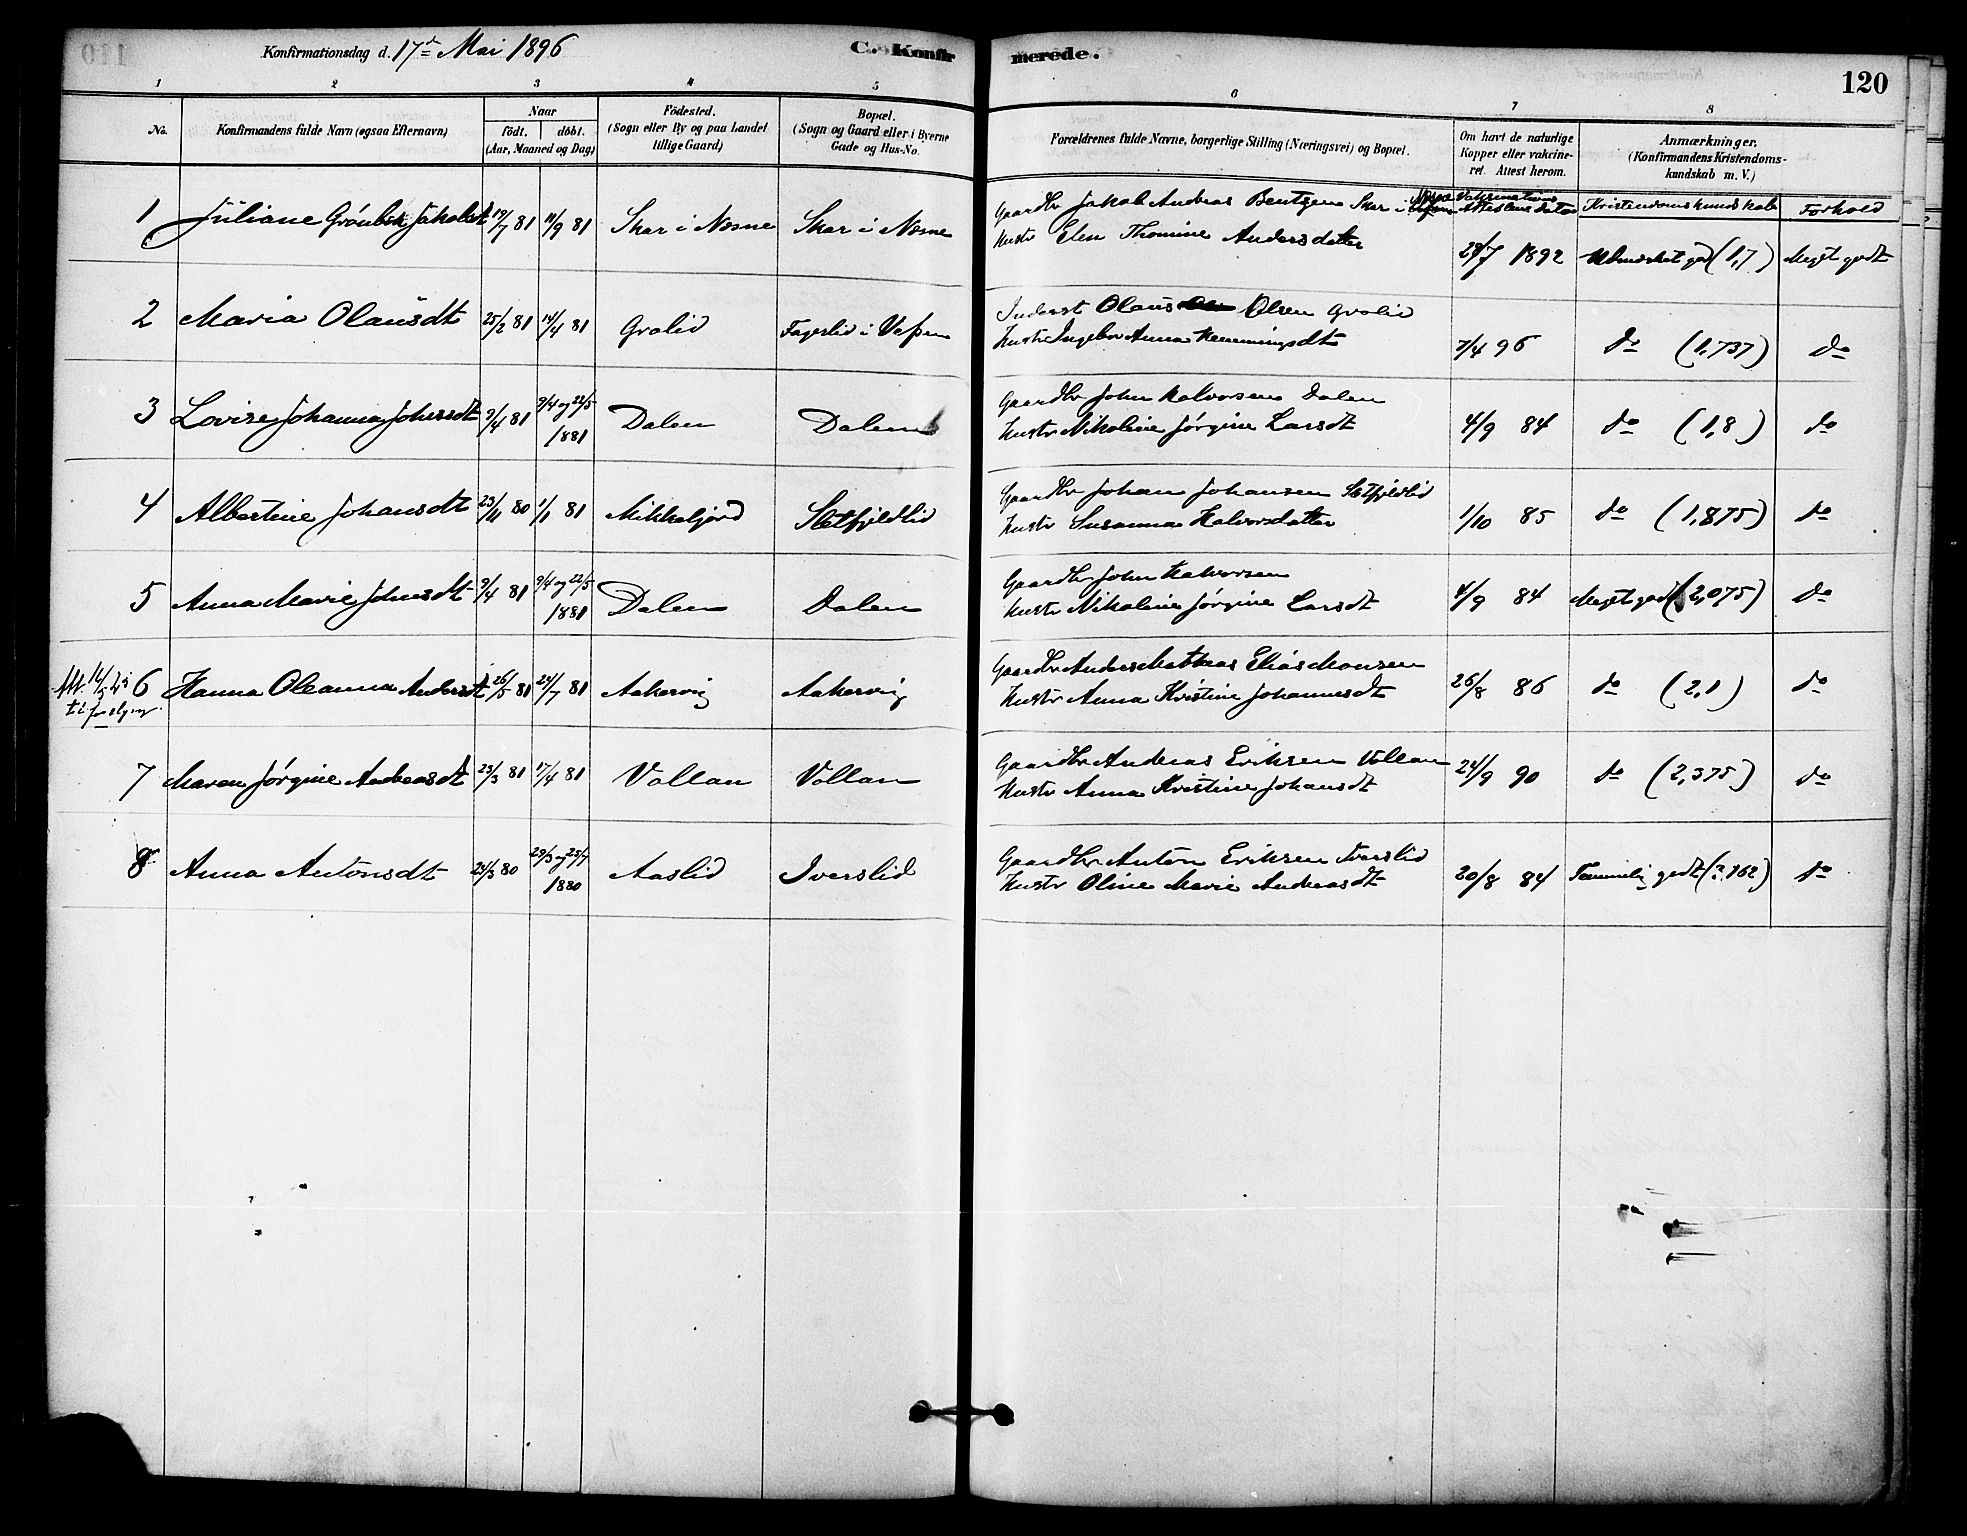 Konfirmationsdag d. 17de Mai 1896
C. Konfirmerede.
120
1 2 3 4 5 6 7 8
No.
Konfirmandens fulde Navn (ogsaa Efternavn)
Naar
födt. döbt.
(Aar, Maaned og Dag)
Födested.
(Sogn eller By og paa Landet
tillige Gaard)
Bopæl.
(Sogn og Gaard eller i Byerne
Gade og Hus-No.
Forældrenes fulde Navne, borgerlige Stilling (Næringsvei) og Bopæl.
Om havt de naturlige
Kopper eller vakcine-
ret. Attest herom.
Anmærkninger.
(Konfirmandens Kristendoms-
kundskab m. V.)
Vakcinations
Attestens datos Kristendomskundskab Forhold
1 Juliane Grönbek Jakobsdt 19/7 81 11/9 81 Skar i Nesne Skar i Nesne Gaardbr Jakob Andreas Bentzen Skar i
Hustr Elen Thomine Andersdatter 28/7 1892 Udmærket god (1,7) Meget godt
2 Maria Olausdt 25/2 81 14/4 81 Grolid Fagerlid i Vefsen Inderst Olaus Olsen Grolid
Hustr Ingebor Anna Henningsdt 7/4 96 do (1,737) do
3 Lovise Johanna Johnsdt 9/4 81 9/4 og 22/5 1881 Dalen Dalen Gaardbr John Halvorsen Dalen
Hustr Nikoline Jørgine Larsdt 4/9 84 do (1,8) do
4 Albertine Johansdt 23/11 80 1/1 81 Mikkeljord Sletfjeldlid Gaardbr Johan Johansen Sletfjeldlid
Hustr Susanna Halvorsdatter 1/10 85 do (1,875) do
5 Anna Marie Johnsdt 9/4 81 9/4 og 22/5 1881 Dalen Dalen Gaardbr John Halvorsen
Hustr Nikoline Jørgine Larsdt 4/9 84 Meget godt (2,075) do
6 Hanna Oleanna Andersdt 26/5 81 24/7 81 Aakervig Aakervig Gaardbr Anders Mathias Elias Monsen
Hustr Anna Kristine Johannesdt 26/8 86 do (2,1) do
7 Maren Jørgine Andreasdt 23/3 81 17/4 81 Vollan Vollan Gaardbr Andreas Eriksen Vollan
Hustr Anna Kristine Johansdt 24/9 90 do (2,375) do
8 Anna Antonsdt 23/3 80 29/3 og 1880 Aaslid Iverslid Gaardbr Anton Eriksen Iverslid
Hustr Oline Marie Andreasdt 20/8 84 Temmelig godt do